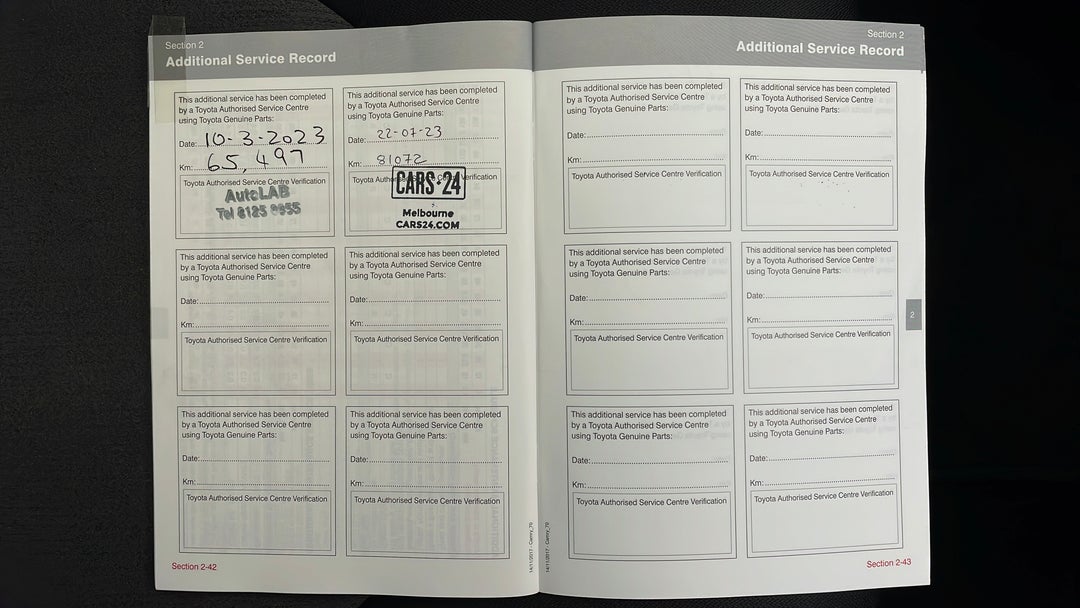 Section 2
Additional Service Record
This additional service has been completed
by a Toyota Authorised Service Centre
using Toyota Genuine Parts:
Date: 10-3-2023
Km: 65,497
Toyota Authorised Service Centre Verification
AutoLAB
Tel 8125
This additional service has been completed
by a Toyota Authorised Service Centre
using Toyota Genuine Parts:
Date: 22-07-23
Km: 81072
Toyota Authorised Service Centre Verification
CARS24
Melbourne
CARS24.COM
This additional service has been completed
by a Toyota Authorised Service Centre
using Toyota Genuine Parts:
Date:
Km:
Toyota Authorised Service Centre Verification
This additional service has been completed
by a Toyota Authorised Service Centre
using Toyota Genuine Parts:
Date:
Km:
Toyota Authorised Service Centre Verification
This additional service has been completed
by a Toyota Authorised Service Centre
using Toyota Genuine Parts:
Date:
Km:
Toyota Authorised Service Centre Verification
This additional service has been completed
by a Toyota Authorised Service Centre
using Toyota Genuine Parts:
Date:
Km:
Toyota Authorised Service Centre Verification
Section 2-42
14/11/2017 - Camry_70
Section 2
Additional Service Record
This additional service has been completed
by a Toyota Authorised Service Centre
using Toyota Genuine Parts:
Date:
Km:
Toyota Authorised Service Centre Verification
This additional service has been completed
by a Toyota Authorised Service Centre
using Toyota Genuine Parts:
Date:
Km:
Toyota Authorised Service Centre Verification
This additional service has been completed
by a Toyota Authorised Service Centre
using Toyota Genuine Parts:
Date:
Km:
Toyota Authorised Service Centre Verification
This additional service has been completed
by a Toyota Authorised Service Centre
using Toyota Genuine Parts:
Date:
Km:
Toyota Authorised Service Centre Verification
2
This additional service has been completed
by a Toyota Authorised Service Centre
using Toyota Genuine Parts:
Date:
Km:
Toyota Authorised Service Centre Verification
This additional service has been completed
by a Toyota Authorised Service Centre
using Toyota Genuine Parts:
Date:
Km:
Toyota Authorised Service Centre Verification
14/11/2017 - Camry_70
Section 2-43